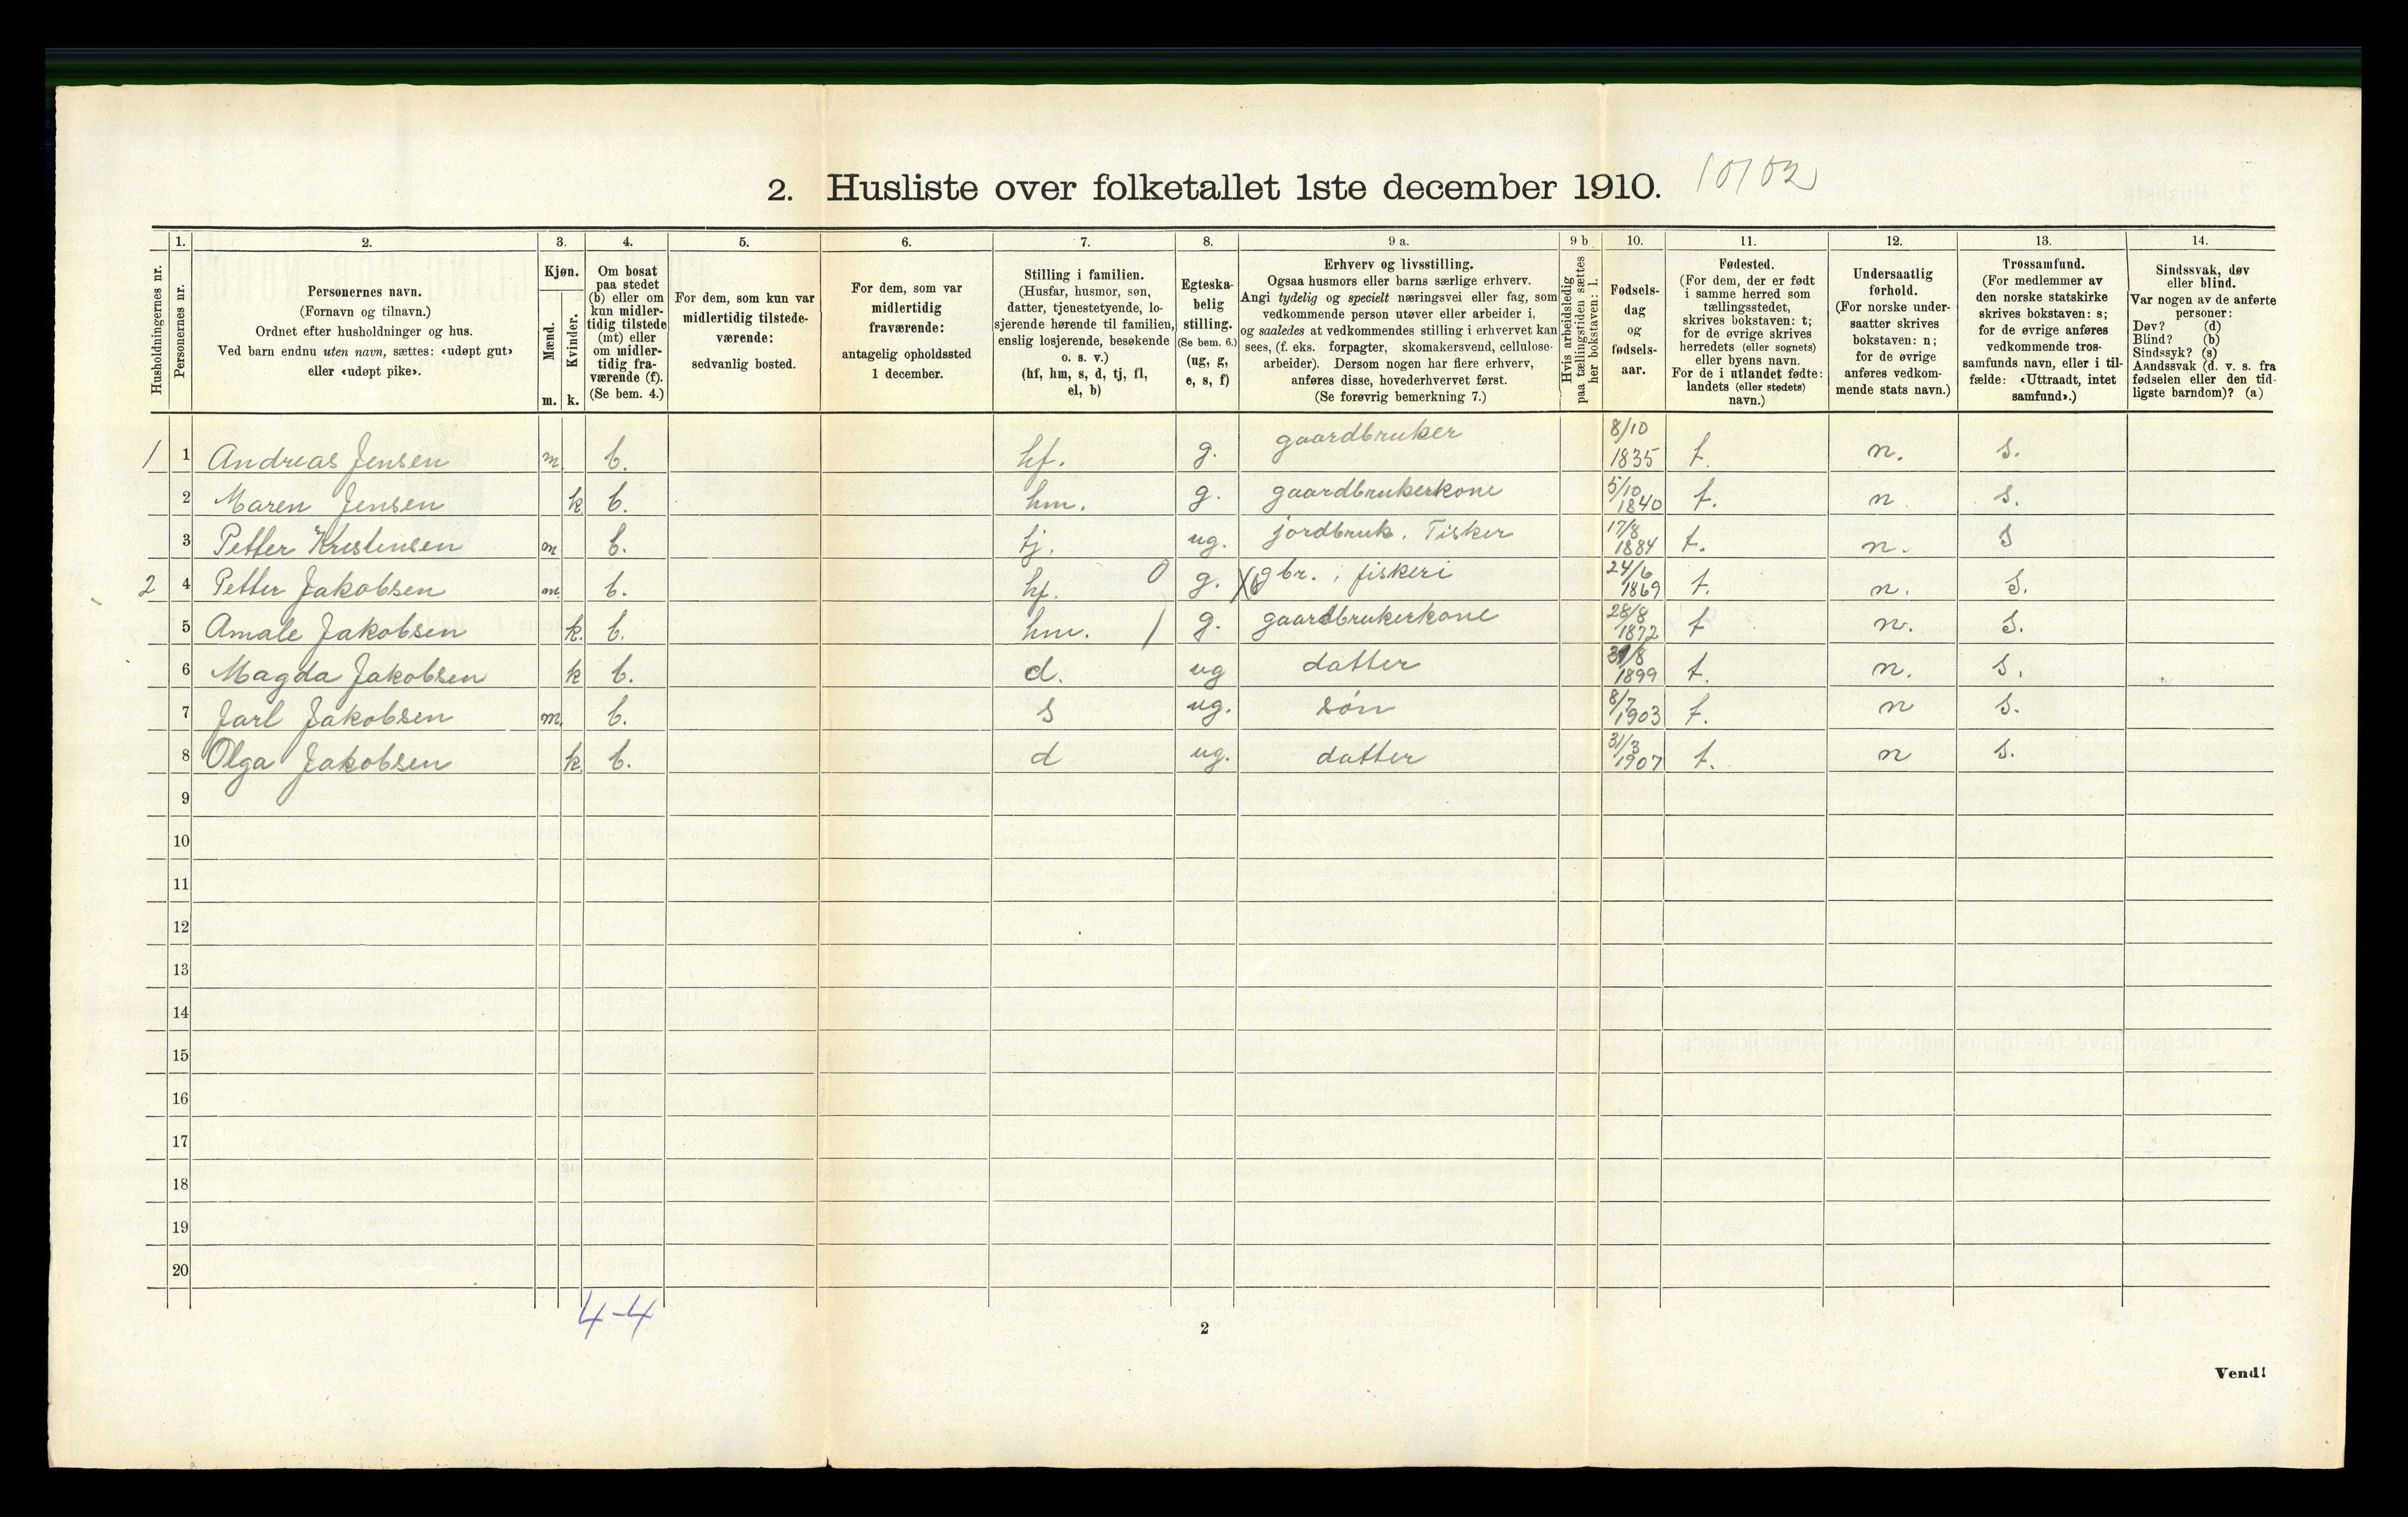 2. Husliste over folketallet 1ste december 1910. 10102
Husholdningernes nr.
1.
Personernes nr.
2.
Personernes navn.
(Fornavn og tilnavn.)
Ordnet efter husholdninger og hus.
Ved barn endnu uten navn, sættes: «udøpt gut»
eller «udøpt pike».
3.
Kjøn.
Mænd.
m.
Kvinder.
k.
4.
Om bosat
paa stedet
(b) eller om
kun midler-
tidig tilstede
(mt) eller
om midler-
tidig fra-
værende (f).
(Se bem. 4.)
5.
For dem, som kun var
midlertidig tilstede-
værende:
sedvanlig bosted.
6.
For dem, som var
midlertidig
fraværende:
antagelig opholdssted
1 december.
7.
Stilling i familien.
(Husfar, husmor, søn,
datter, tjenestetyende, lo-
sjerende hørende til familien,
enslig losjerende, besøkende
o. s. v.)
(hf, hm, s, d, tj, fl,
el, b)
8.
Egteska-
belig
stilling.
(Se bem. 6.)
(ug, g,
e, s, f)
9 a.
Erhverv og livsstilling.
Ogsaa husmors eller barns særlige erhverv.
Angi tydelig og specielt næringsvei eller fag, som
vedkommende person utøver eller arbeider i,
og saaledes at vedkommendes stilling i erhvervet kan
sees, (f. eks. forpagter, skomakersvend, cellulose-
arbeider). Dersom nogen har flere erhverv,
anføres disse, hovederhvervet først.
(Se forøvrig bemerkning 7.)
9 b
Hvis arbeidsledig
paa tællingstiden sættes
her bokstaven: l.
10.
Fødsels-
dag
og
fødsels-
aar.
11.
Fødested.
(For dem, der er født
i samme herred som
tællingsstedet,
skrives bokstaven: t;
for de øvrige skrives
herredets (eller sognets)
eller byens navn.
For de i utlandet fødte:
landets (eller stedets)
navn.)
12.
Undersaatlig
forhold.
(For norske under-
saatter skrives
bokstaven: n;
for de øvrige
anføres vedkom-
mende stats navn.)
13.
Trossamfund.
(For medlemmer av
den norske statskirke
skrives bokstaven: s;
for de øvrige anføres
vedkommende tros-
samfunds navn, eller i til-
fælde: «Uttraadt, intet
samfund».)
14.
Sindssvak, døv
eller blind.
Var nogen av de anførte
personer:
Døv? (d)
Blind? (b)
Sindssyk? (s)
Aandssvak (d. v. s. fra
fødselen eller den tid-
ligste barndom)? (a)
1 1 Andreas Jensen m b. hf. g. gaardbruker 8/10 1835 t. n. s.
2 Maren Jensen k b. hm. g. gaardbrukerkone 5/10 1840 t. n s.
3 Petter Kristensen m b. tj. ug. jordbruk. Fisker 17/8 1884 t. n. s
2 4 Petter Jakobsen m b. hf. 0 g. gbr., fiskeri 24/6 1869 t. n. s.
5 Amale Jakobsen k. b. hm. 1 g. gaardbrukerkone 28/8 1872 t n. s.
6 Magda Jakobsen k b. d. ug datter 31/8 1899 t. n. s.
7 Jarl Jakobsen m. b. s ug. søn 8/7 1903 t. n s.
8 Olga Jakobsen k b. d ug. datter 31/3 1907 t. n s.
9
10
11
12
13
14
15
16
17
18
19
20
4-4
2
Vend!